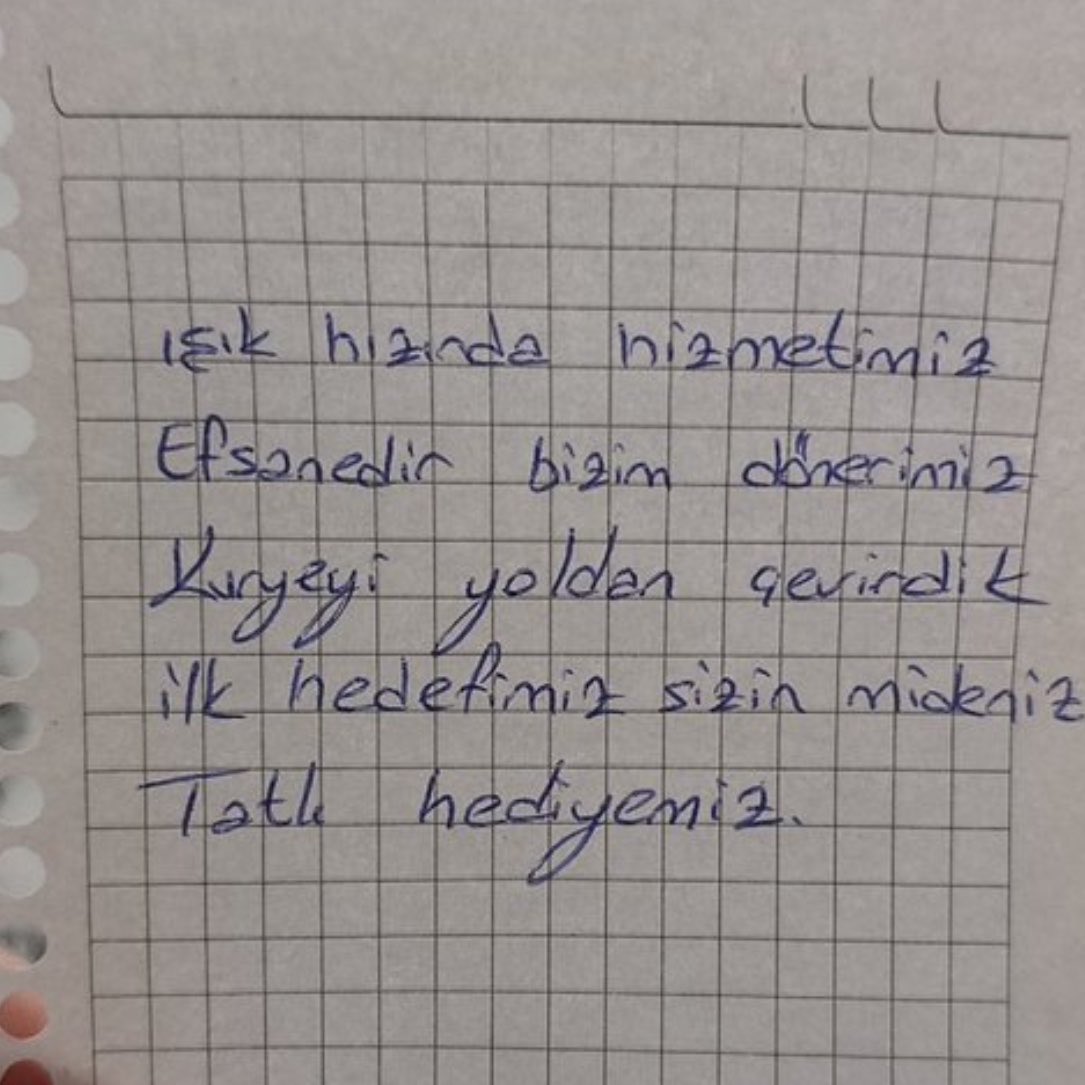 ışık hızında hizmetimiz
Efsanedir bizim dönerimiz
Kuryeyi yoldan çevirdik
ilk hedefimiz sizin mideniz
Tatlı hediyemiz.